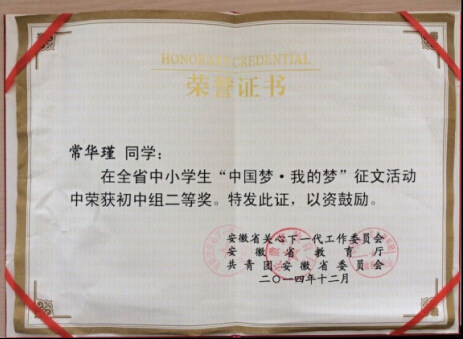 HONORARY CREDENTIAL
荣誉证书
常华瑾 同学：
在全省中小学生“中国梦·我的梦”征文活动
中荣获初中组二等奖。特发此证，以资鼓励。
安徽省关心下一代工作委员会
安徽省教育厅
共青团安徽省委员会
二〇一四年十二月